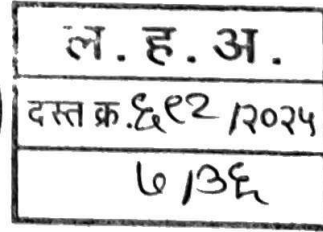 ल. ह. अ.
दस्त क्र. ६९२ /२०२५
७ /३६